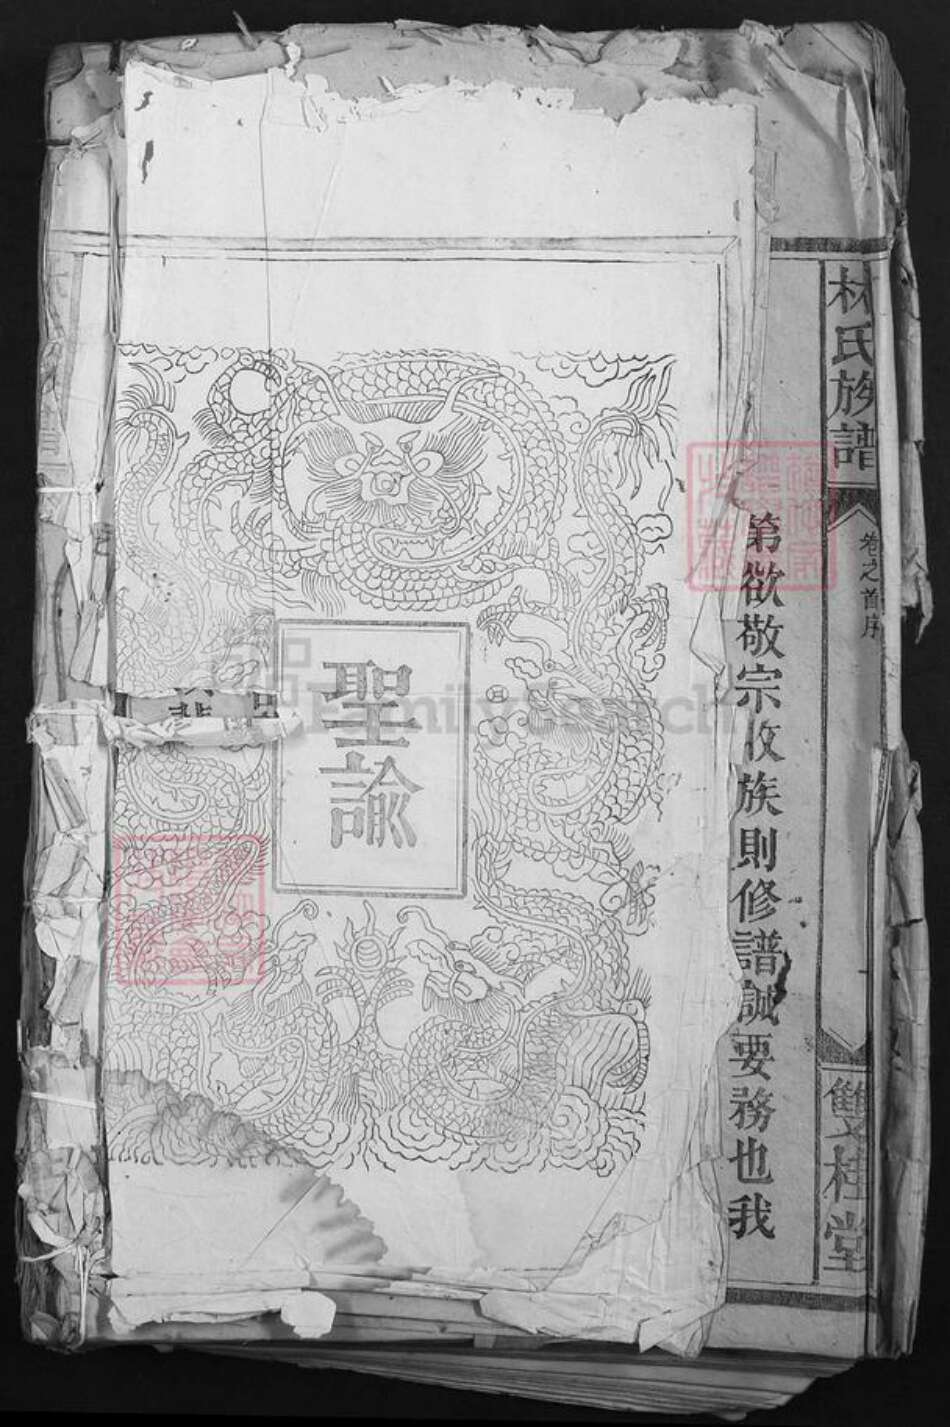 林氏族譜
卷之首序
雙桂堂
第欲敬宗收族則修譜誠要務也我
聖諭
FamilySearch